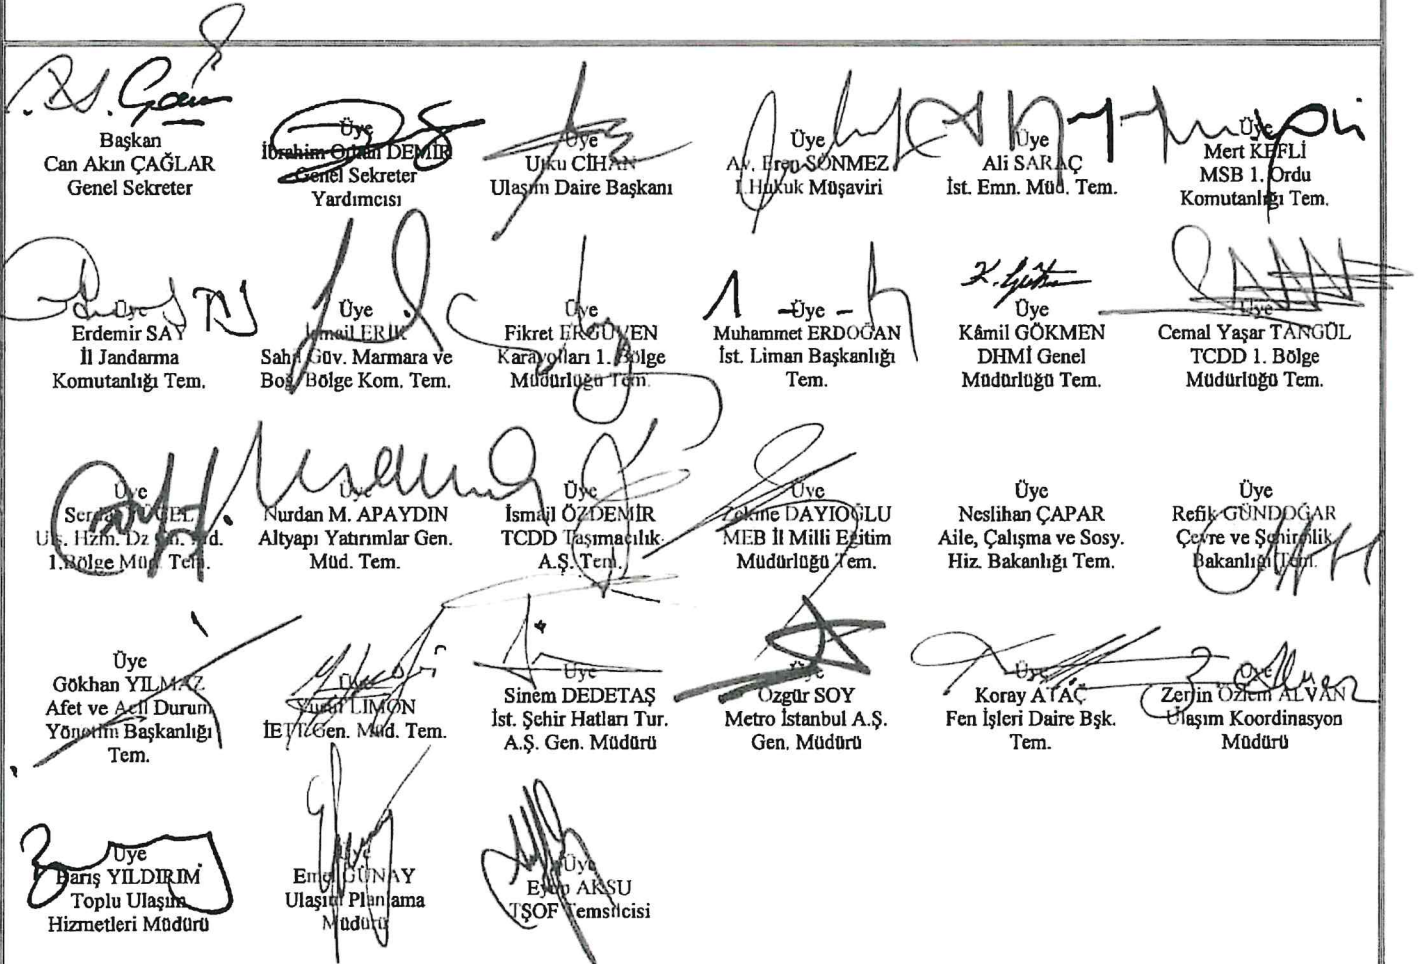 Başkan
Can Akın ÇAĞLAR
Genel Sekreter
Üye
İbrahim Orhan DEMİR
Genel Sekreter
Yardımcısı
Üye
Utku CİHAN
Ulaşım Daire Başkanı
Üye
Av. Eren SÖNMEZ
1.Hukuk Müşaviri
Üye
Ali SARAÇ
İst. Emn. Müd. Tem.
Üye
Mert KEFLİ
MSB 1. Ordu
Komutanlığı Tem.
Üye
Erdemir SAY
İl Jandarma
Komutanlığı Tem.
Üye
İsmail ERİK
Sahil Güv. Marmara ve
Boğ. Bölge Kom. Tem.
Üye
Fikret ERGÜVEN
Karayolları 1. Bölge
Müdürlüğü Tem.
Üye
Muhammet ERDOĞAN
İst. Liman Başkanlığı
Tem.
Üye
Kâmil GÖKMEN
DHMİ Genel
Müdürlüğü Tem.
Üye
Cemal Yaşar TANGÜL
TCDD 1. Bölge
Müdürlüğü Tem.
Üye
Ulş. Hzm. Dz
1.Bölge Müd. Tem.
Üye
Nurdan M. APAYDIN
Altyapı Yatırımlar Gen.
Müd. Tem.
Üye
İsmail ÖZDEMİR
TCDD Taşımacılık
A.Ş. Tem.
Üye
Zekine DAYIOĞLU
MEB İl Milli Eğitim
Müdürlüğü Tem.
Üye
Neslihan ÇAPAR
Aile, Çalışma ve Sosy.
Hiz. Bakanlığı Tem.
Üye
Refik GÜNDOĞAR
Çevre ve Şehircilik
Bakanlığı Tem.
Üye
Gökhan YILMAZ
Afet ve Acil Durum
Yönetim Başkanlığı
Tem.
Üye
LİMON
İETT Gen. Müd. Tem.
Üye
Sinem DEDETAŞ
İst. Şehir Hatları Tur.
A.Ş. Gen. Müdürü
Üye
Özgür SOY
Metro İstanbul A.Ş.
Gen. Müdürü
Üye
Koray ATAÇ
Fen İşleri Daire Bşk.
Tem.
Üye
Zerrin Özlem ALVAN
Ulaşım Koordinasyon
Müdürü
Üye
Barış YILDIRIM
Toplu Ulaşım
Hizmetleri Müdürü
Üye
GÜNAY
Ulaşım Planlama
Müdürü
Üye
Eyüp AKSU
TŞOF Temsilcisi